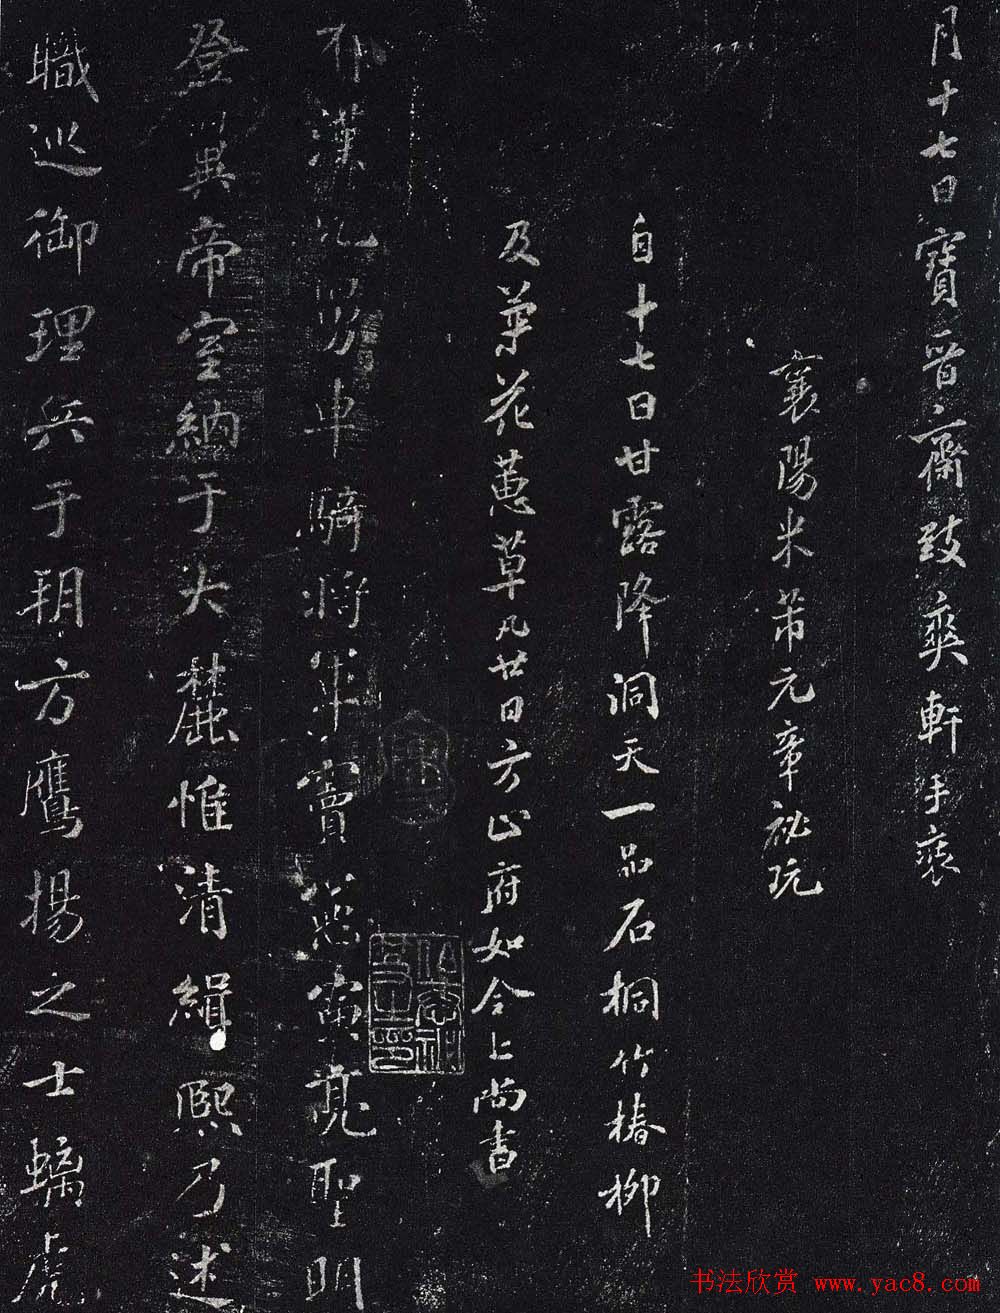 月十七日寶晉齋致爽軒手裝
襄陽米芾元章祕玩
自十七日甘露降洞天一品石桐竹椿柳
及蕉花蕙草凡廿日方止府如令上尚書
漢元車騎將軍竇寅亮聖明
登異帝室納于大麓惟清緝熙乃述
職巡御理兵于朔方鷹揚之士螭虎
书法欣赏 www.yac8.com